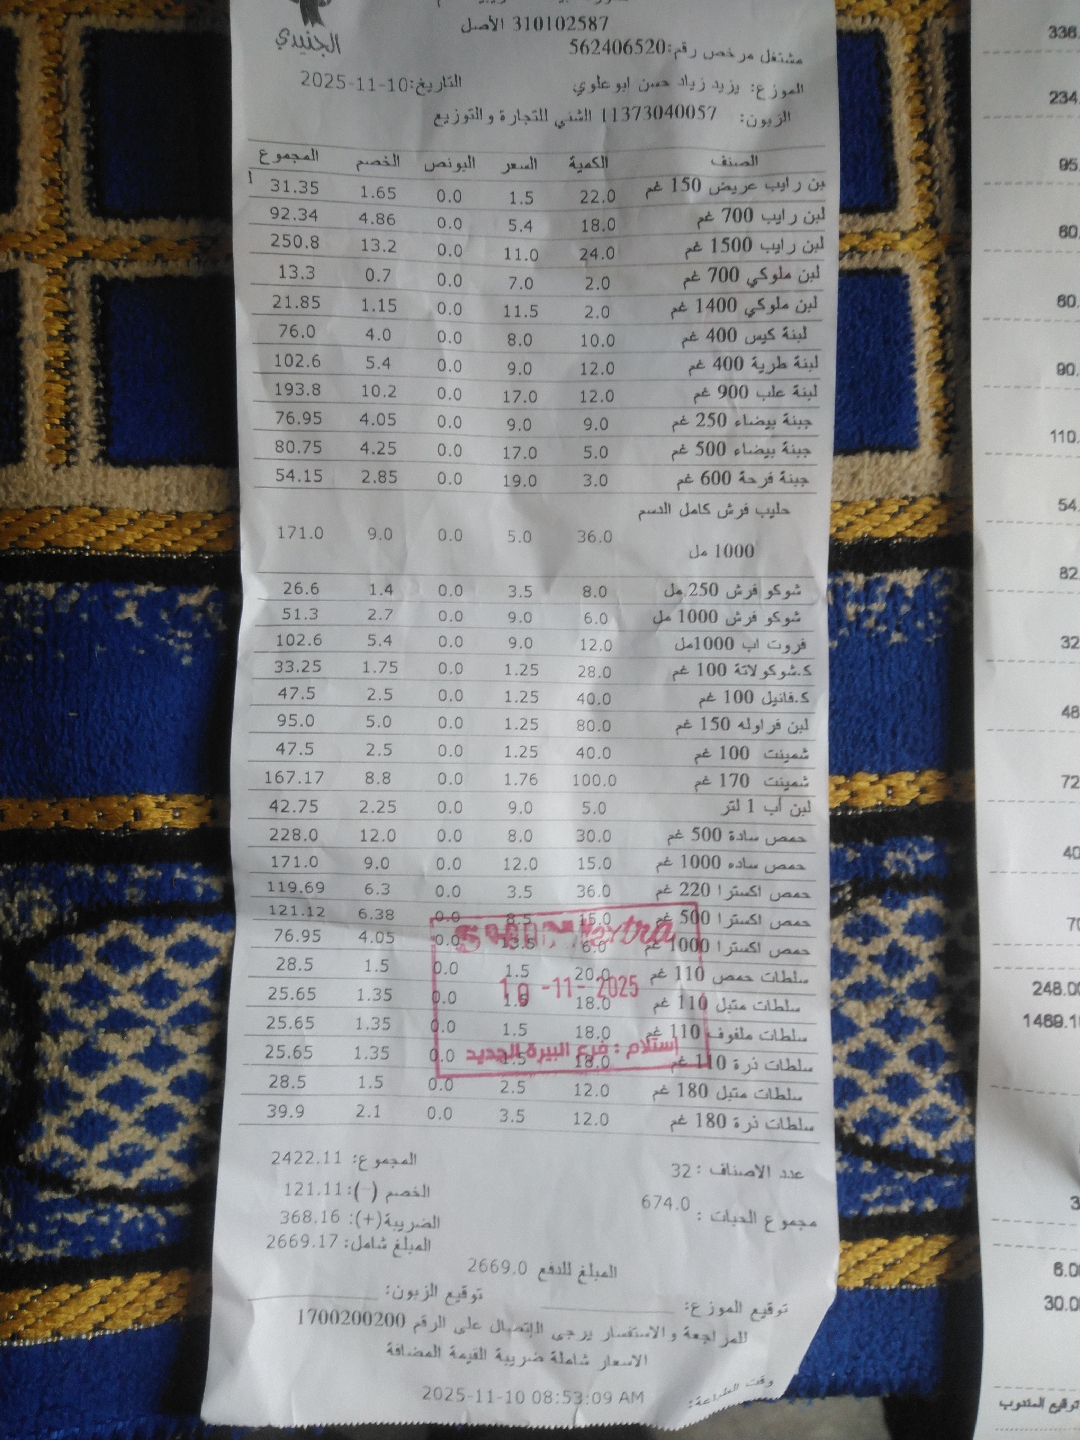 الجنيدي
310102587 الأصل
مشتغل مرخص رقم:562406520
الموزع: يزيد زياد حسن ابو علوي التاريخ:10-11-2025
الزبون: 11373040057 الشني للتجارة والتوزيع
الصنف الكمية السعر البونص الخصم المجموع
بن رايب عريض 150 غم 22.0 1.5 0.0 1.65 31.35
لبن رايب 700 غم 18.0 5.4 0.0 4.86 92.34
لبن رايب 1500 غم 24.0 11.0 0.0 13.2 250.8
لبن ملوكي 700 غم 2.0 7.0 0.0 0.7 13.3
لبن ملوكي 1400 غم 2.0 11.5 0.0 1.15 21.85
لبنة كيس 400 غم 10.0 8.0 0.0 4.0 76.0
لبنة طرية 400 غم 12.0 9.0 0.0 5.4 102.6
لبنة علب 900 غم 12.0 17.0 0.0 10.2 193.8
جبنة بيضاء 250 غم 9.0 9.0 0.0 4.05 76.95
جبنة بيضاء 500 غم 5.0 17.0 0.0 4.25 80.75
جبنة فرحة 600 غم 3.0 19.0 0.0 2.85 54.15
حليب فرش كامل الدسم
1000 مل 36.0 5.0 0.0 9.0 171.0
شوكو فرش 250 مل 8.0 3.5 0.0 1.4 26.6
شوكو فرش 1000 مل 6.0 9.0 0.0 2.7 51.3
فروت اب 1000مل 12.0 9.0 0.0 5.4 102.6
ك.شوكولاتة 100 غم 28.0 1.25 0.0 1.75 33.25
ك.فانيل 100 غم 40.0 1.25 0.0 2.5 47.5
لبن فراوله 150 غم 80.0 1.25 0.0 5.0 95.0
شمينت 100 غم 40.0 1.25 0.0 2.5 47.5
شمينت 170 غم 100.0 1.76 0.0 8.8 167.17
لبن أب 1 لتر 5.0 9.0 0.0 2.25 42.75
حمص سادة 500 غم 30.0 8.0 0.0 12.0 228.0
حمص ساده 1000 غم 15.0 12.0 0.0 9.0 171.0
حمص اكسترا 220 غم 36.0 3.5 0.0 6.3 119.69
حمص اكسترا 500 غم 15.0 8.5 0.0 6.38 121.12
حمص اكسترا 1000 غم 6.0 13.5 0.0 4.05 76.95
سلطات حمص 110 غم 20.0 1.5 0.0 1.5 28.5
سلطات متبل 110 غم 18.0 1.5 0.0 1.35 25.65
سلطات ملفوف 110 غم 18.0 1.5 0.0 1.35 25.65
سلطات ذرة 110 غم 18.0 1.5 0.0 1.35 25.65
سلطات متبل 180 غم 12.0 2.5 0.0 1.5 28.5
سلطات ذرة 180 غم 12.0 3.5 0.0 2.1 39.9
extra
10-11-2025
إستلام : فرع البيرة الجديد
عدد الاصناف : 32 المجموع: 2422.11
الخصم (-):121.11
مجموع الحبات : 674.0 الضريبة(+): 368.16
المبلغ شامل: 2669.17
المبلغ للدفع 2669.0
توقيع الموزع: توقيع الزبون:
للمراجعة والاستفسار يرجى الإتصال على الرقم 1700200200
الاسعار شاملة ضريبة القيمة المضافة
وقت الطباعة: 2025-11-10 08:53:09 AM
336.
234.
95.
60.
60.
90.
110.
54.
82.
32
48
72
40
70
248.00
1469.1
3
6.0
30.0
توقيع المندوب